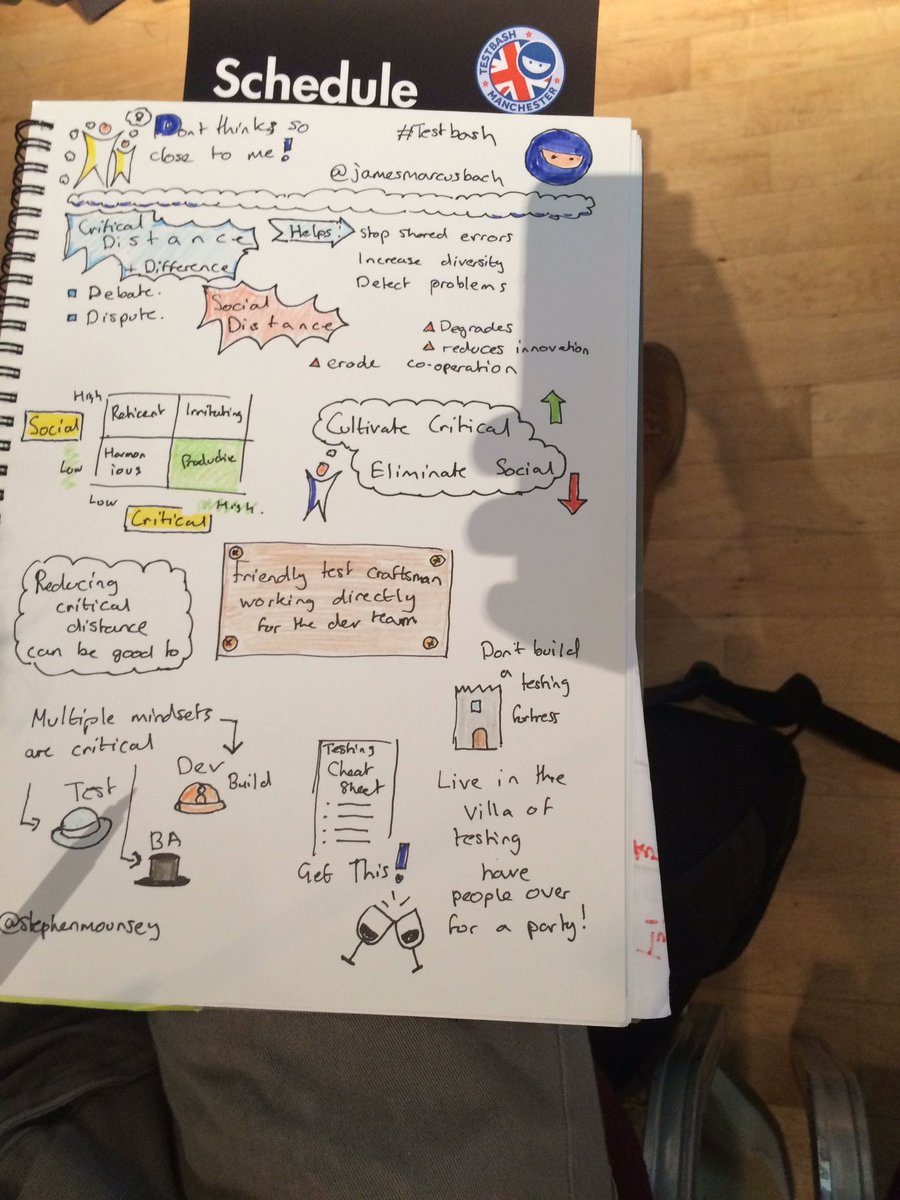 Schedule
TESTBASH
MANCHESTER
Dont thinks so
close to me!
#Testbash
@jamesmarcusbach
Critical
Distance
+ Difference
Helps:
Stop shared errors
Increase diversity
Detect problems
Debate.
Dispute.
Social
Distance
Degrades
reduces innovation
erode co-operation
High
Reticent
Irritating
Social
Low
Harmon
ious
Productive
Low
High.
Critical
Cultivate Critical
Eliminate Social
Reducing
critical
distance
can be good to
Friendly test craftsman
working directly
for the dev team
Don't build
a testing
fortress
Multiple mindsets
are critical
Test
Dev
Build
BA
Testing
Cheat
Sheet
Get This!
Live in the
Villa of
testing
have
people over
for a party!
@stephenmounsey